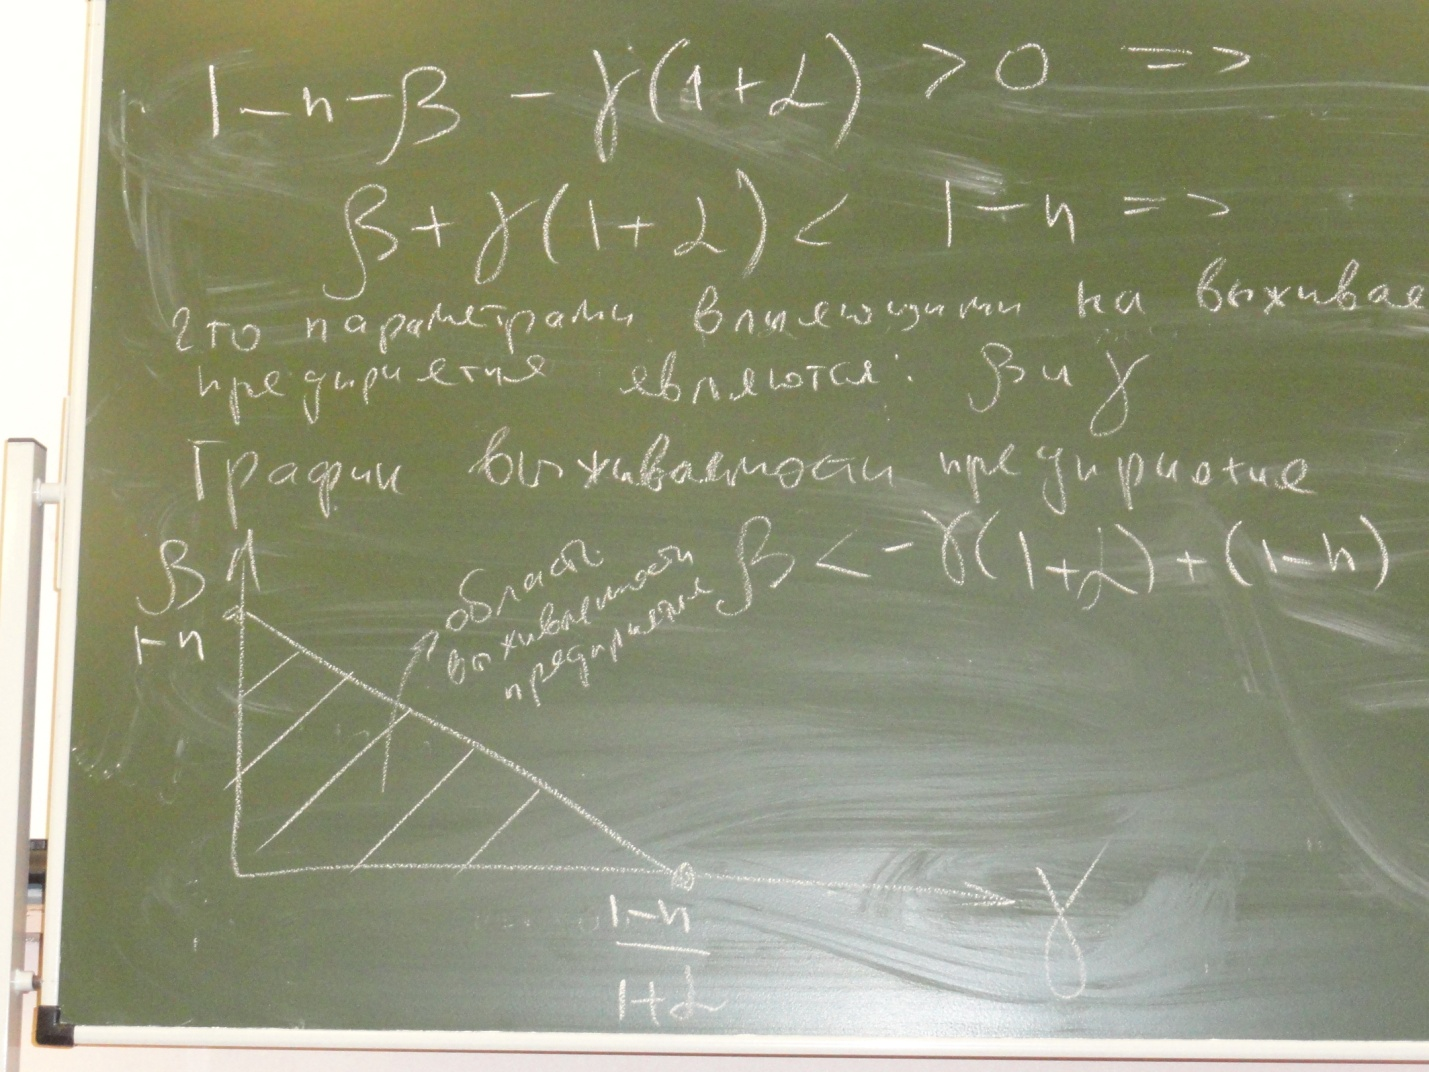 1-n-β - γ(1+α) > 0 =>
β+γ(1+α) < 1-n =>
что параметрами влияющими на выживае
предприятие являются: β и γ
График выживаемости предприятие
β < -γ(1+α) + (1-n)
область
выживаемости
предприятия
β
1-n
γ
1-n
1+α